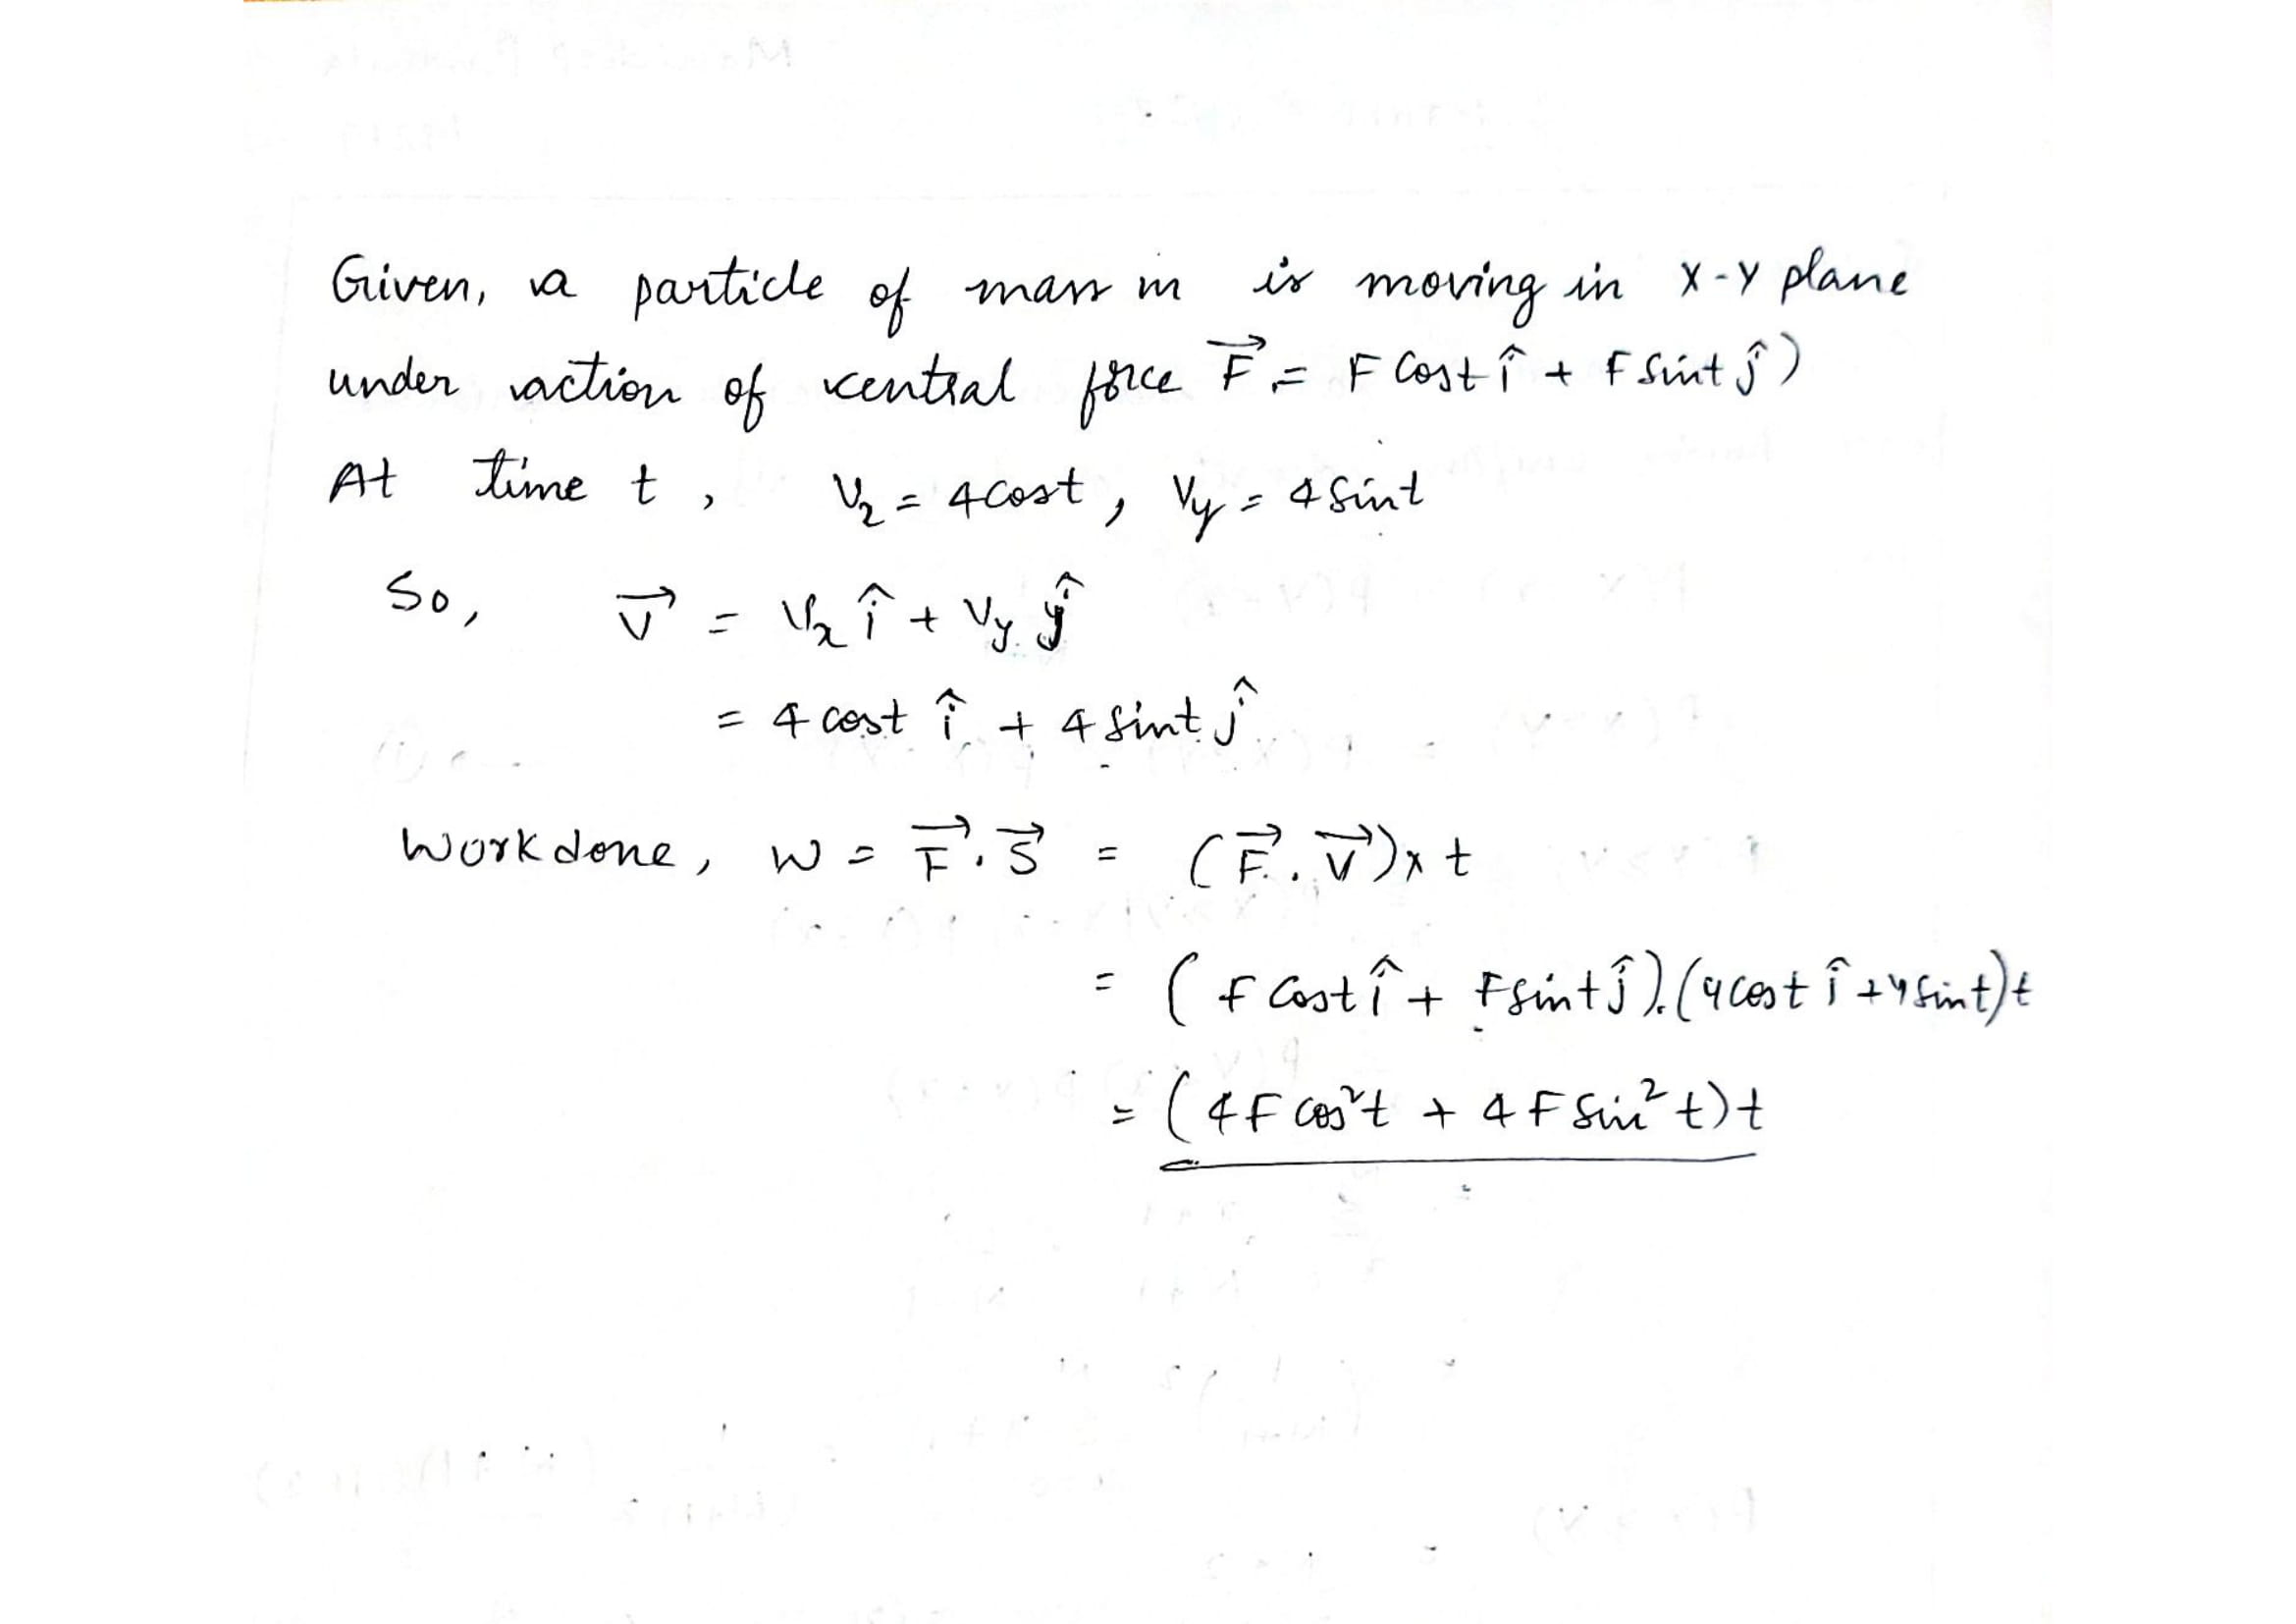 Given, a particle of mass m is moving in X-Y plane
under action of central force F⃗ = F Cost î + F Sint ĵ)
At time t, Vx = 4cost, Vy = 4 Sint
So, V⃗ = Vx î + Vy ĵ
= 4 cost î + 4 Sint ĵ
Work done, W = F⃗ . S⃗ = (F⃗ . V⃗) x t
= (F Cost î + F Sint ĵ).(4 cost î + 4 Sint) t
= (4F cos²t + 4F Sin²t) t